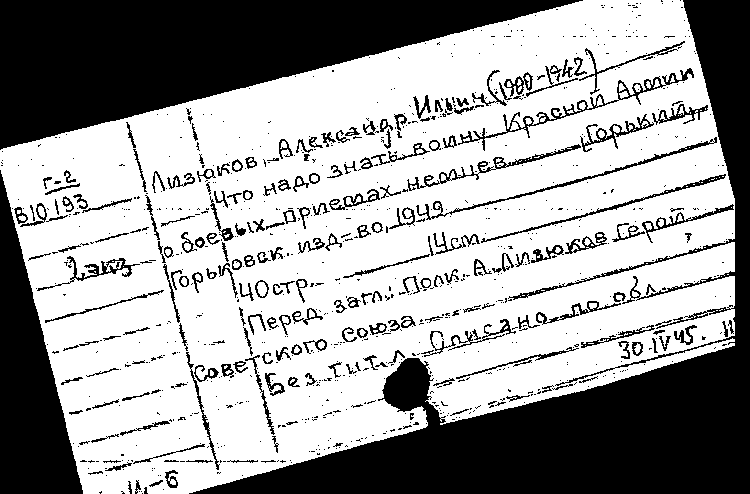 Лизюков, Александр Ильич (1900-1942)
Г-2
В10193
Что надо знать воину Красной Армии
о боевых приемах немцев. [Горький],
2 экз
Горьковск. изд-во, 1949
40стр. 14см.
Перед загл.: Полк. А. Лизюков Герой
Советского Союза.
Без тит. л. Описано по обл.
30.IV45.
И-Б